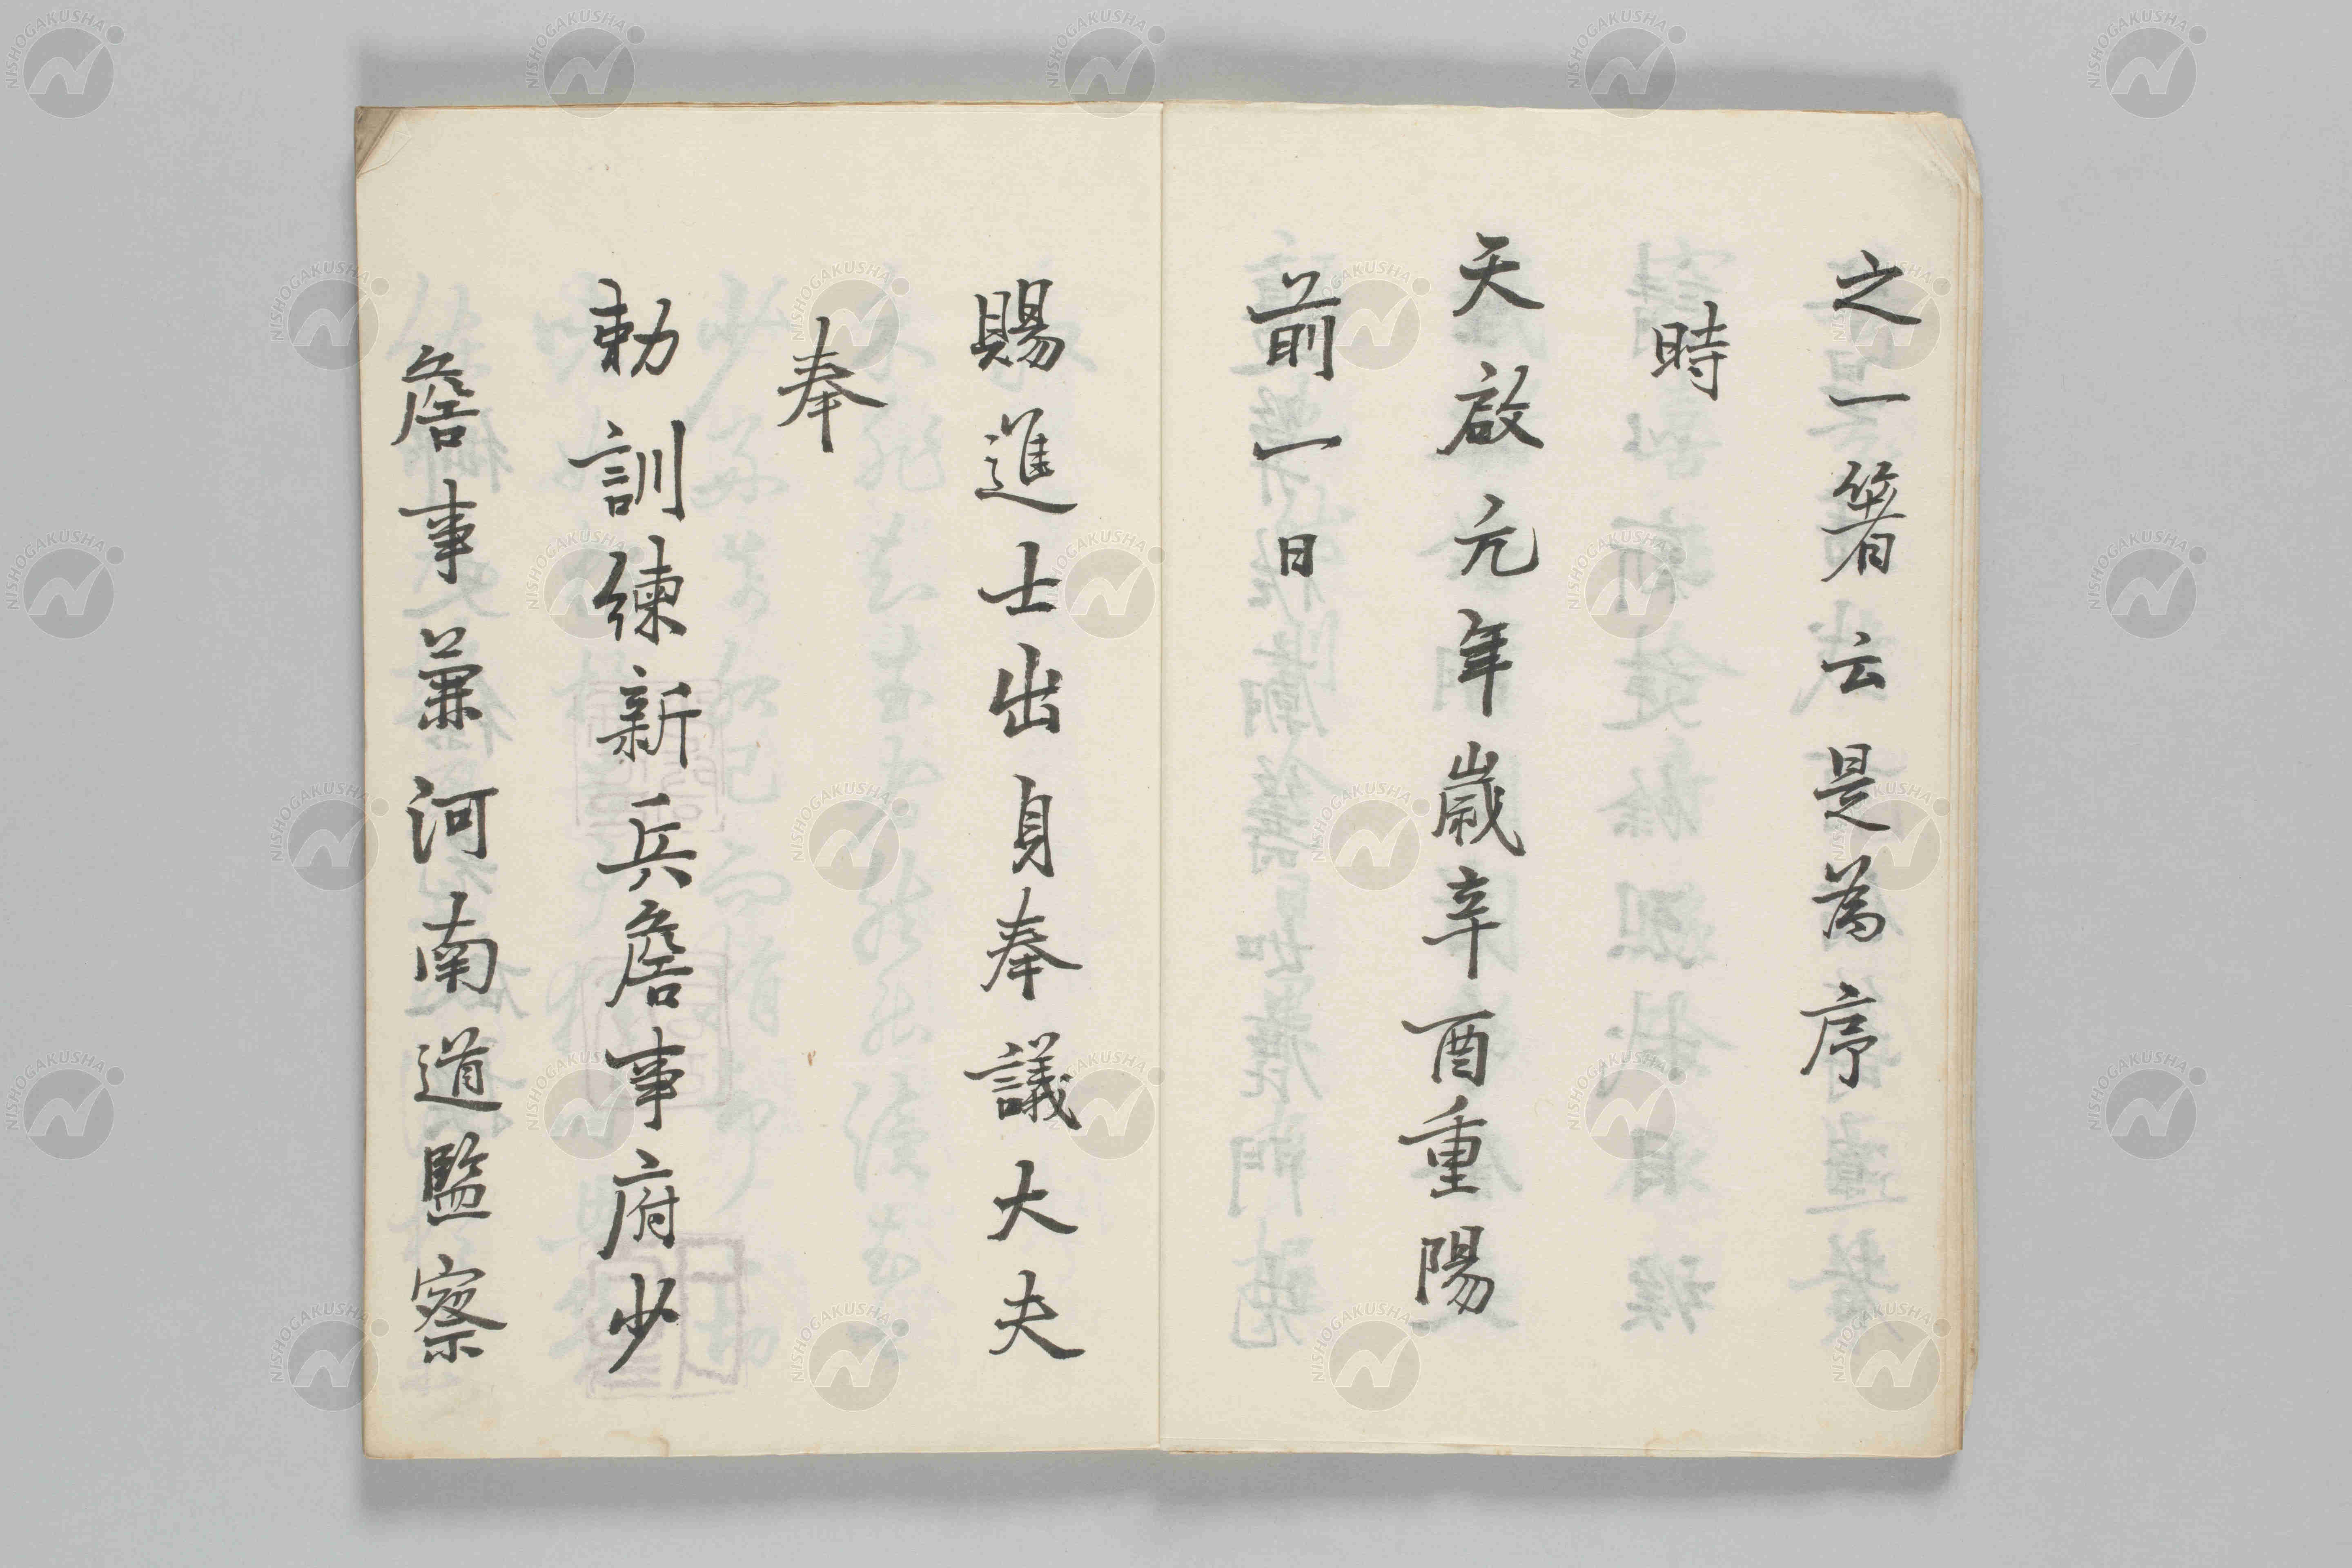 之一箸云是為序
時
天啟元年歲辛酉重陽
前一日
賜進士出身奉議大夫
奉
勅訓練新兵詹事府少
詹事兼河南道監察
NISHOGAKUSHA